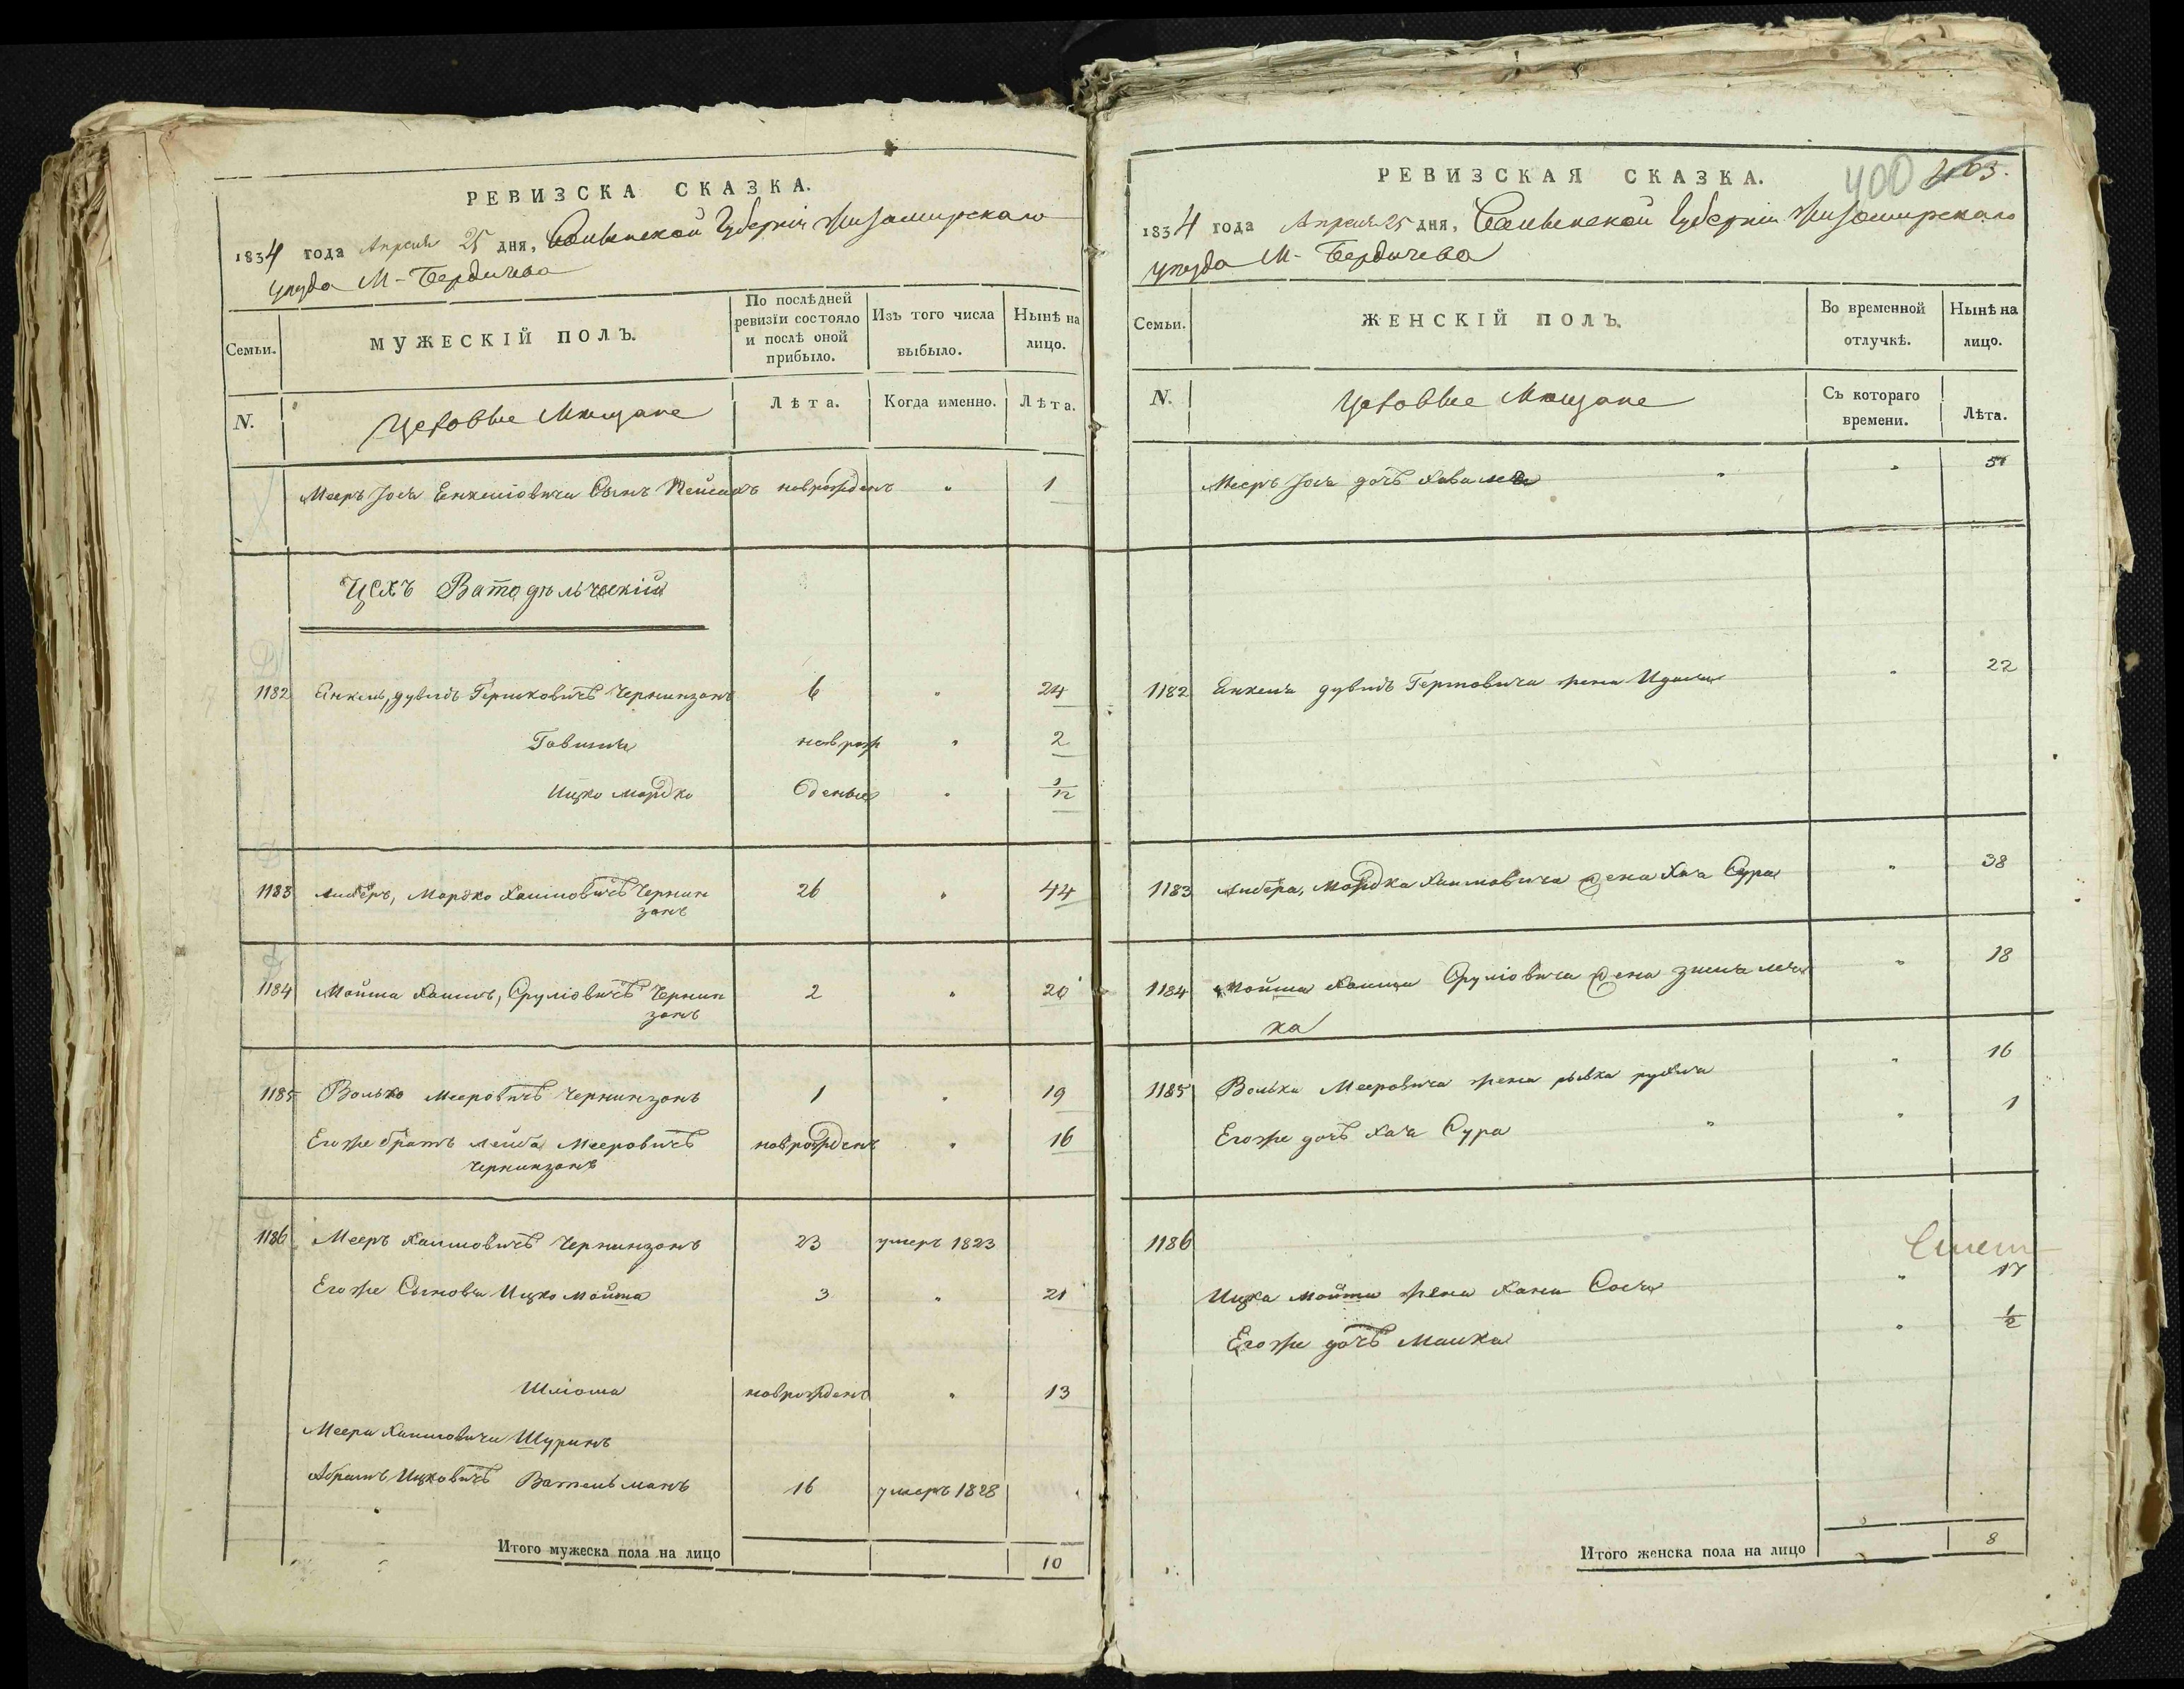 РЕВИЗСКА СКАЗКА.
1834 года Апреля 25 дня, Волынской Губерніи Житомирскаго
уезда М- Бердичева
Семьи.
МУЖЕСКІЙ ПОЛЪ.
По послѣдней ревизіи состояло и послѣ оной прибыло.
Изъ того числа выбыло.
Нынѣ на лицо.
N.
Цеховые Мещане
Лѣта.
Когда именно.
Лѣта.
Меера Іося Енкеліовича Сынъ Пейсахъ новрожденъ " 1
Цехъ Ватодѣльческій
1182 Енкель, дувидъ Гершковичъ Чернинзонъ 6 " 24
новрож " 2
Ицко Мордко деные " 1/12
1183 Мордко Хаимовичъ Чернин 26 " 44
зонъ
1184 Мойша Хаимъ, Сруліовичъ Чернин 2 " 20
зонъ
1185 Волько Мееровичъ Чернинзонъ 1 " 19
Егоже братъ Лейба Мееровичъ новрожденъ " 16
Чернинзонъ
1186 Мееръ Хаимовичъ Чернинзонъ 23 умеръ 1823
Егоже Сыновья Ицко Мойша 3 " 21
Шліома новрожденъ " 13
Меера Хаимовича Шуринъ
Абрамъ Ицковичъ Вательманъ 16 умеръ 1828
Итого мужеска пола на лицо 10
РЕВИЗСКАЯ СКАЗКА.
400 403.
1834 года Апреля 25 дня, Волынской Губерніи Житомирскаго
уезда М- Бердичева
Семьи.
ЖЕНСКІЙ ПОЛЪ.
Во временной отлучкѣ.
Нынѣ на лицо.
N.
Цеховые Мещане
Съ котораго времени.
Лѣта.
Меера Іося дочь " "
1182 Енкеля дувида Гершковича жена " 22
1183 Мордка Хаимовича жена Хая Сура " 38
1184 Мойша Хаима Сруліовича жена " 18
ка
1185 Волька Мееровича жена рывка рухля " 16
Егоже дочь Хая Сура " " 1
1186
Ицка Мойши жена Хана Сося " 17
Егоже дочь Малка " 1/2
Итого женска пола на лицо 8